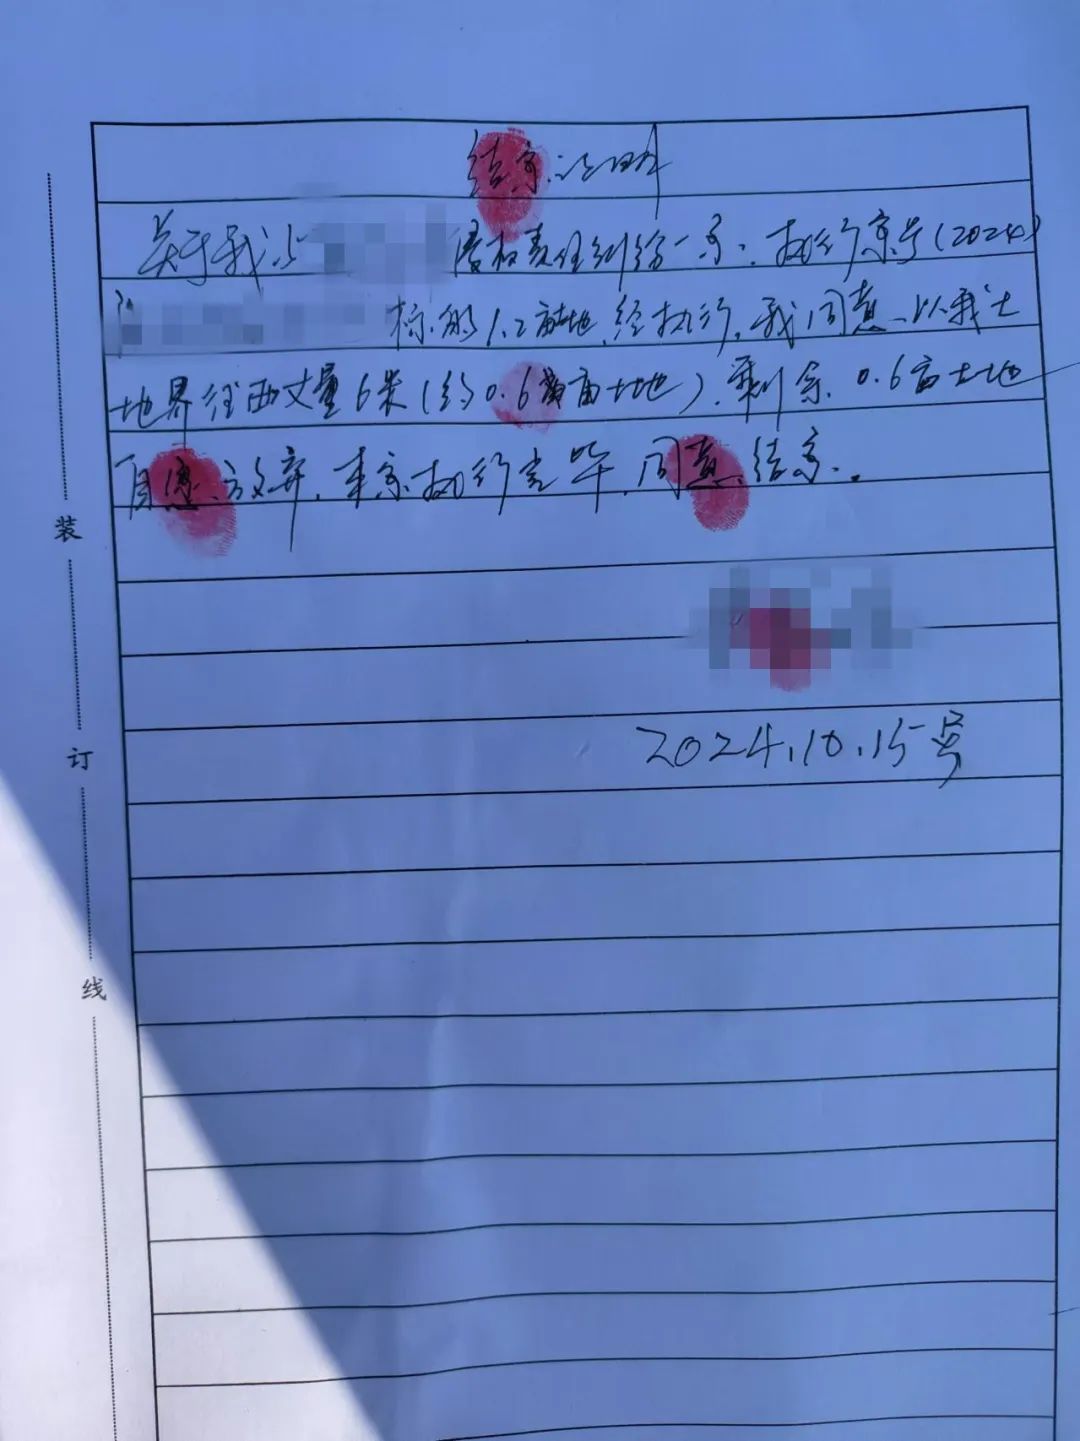 结案证明
关于我与 侵权责任纠纷一案，执行案号（2024）
标的1.2亩地，经执行，我同意，以我土
地界往西丈量6米（约0.6亩土地），剩余0.6亩土地
自愿放弃，本案执行完毕，同意结案。
2024.10.15号
装
订
线